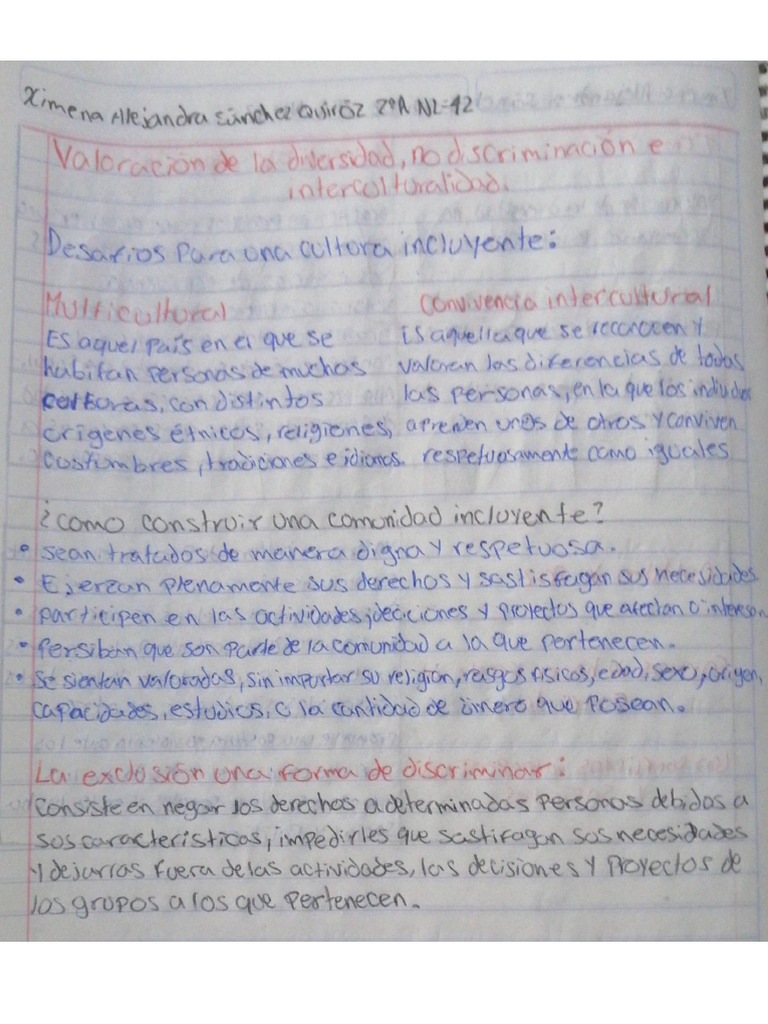 Ximena Alejandra Sánchez Quiróz 2ºA NL=42
Valoración de la diversidad, no discriminación e
interculturalidad.
Desafios para una cultura incluyente:
Multicultural
Es aquel país en el que se
habitan personas de muchas
culturas, con distintos
orígenes étnicos, religiones,
costumbres, tradiciones e idiomas.
Convivencia intercultural
Es aquella que se reconocen y
valoran las diferencias de todas
las personas, en la que los individuos
aprenden unos de otros y conviven
respetuosamente como iguales
¿como construir una comunidad incluyente?
• sean tratados de manera digna y respetuosa.
• Ejerzan plenamente sus derechos y sastisfagan sus necesidades
• participen en las actividades, deciciones y proyectos que afectan o interesan
• Persiban que son parte de la comunidad a la que pertenecen.
• Se sientan valoradas, sin importar su religión, rasgos físicos, edad, sexo, origen,
capacidades, estudios, o la cantidad de dinero que posean.
La exclusión una forma de discriminar:
Consiste en negar los derechos a determinadas personas debidos a
sus características, impedirles que sastifagan sus necesidades
y dejarlas fuera de las actividades, las decisiones y proyectos de
los grupos a los que pertenecen.